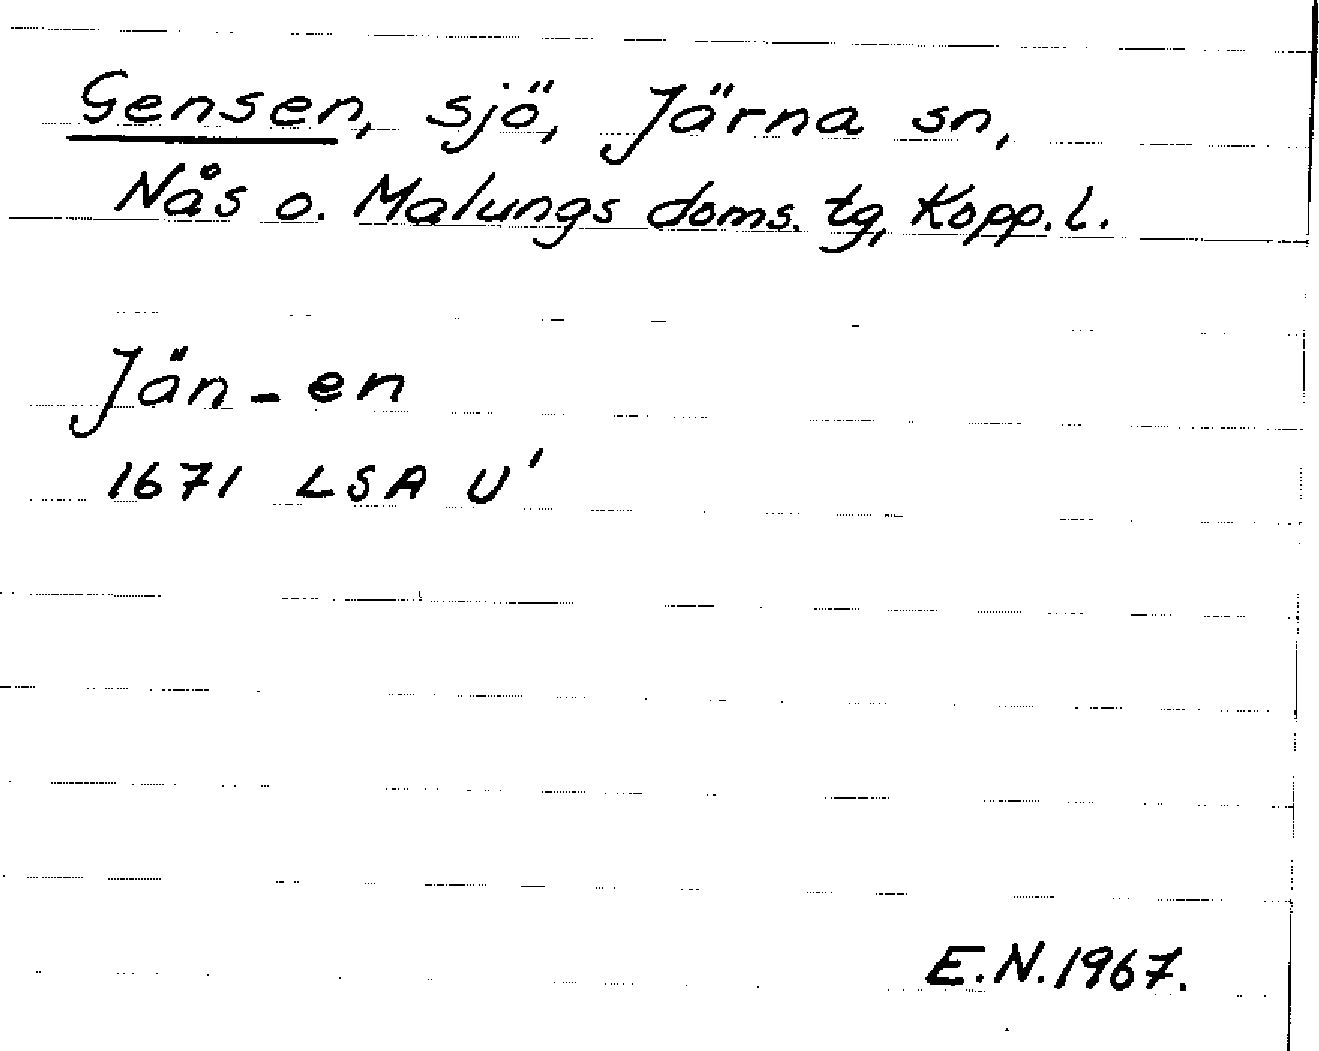 Gensen, sjö, Järna sn,
Nås o. Malungs doms. tg, Kopp. l.
Jän - en
1671 LSA U'
E.N. 1967.